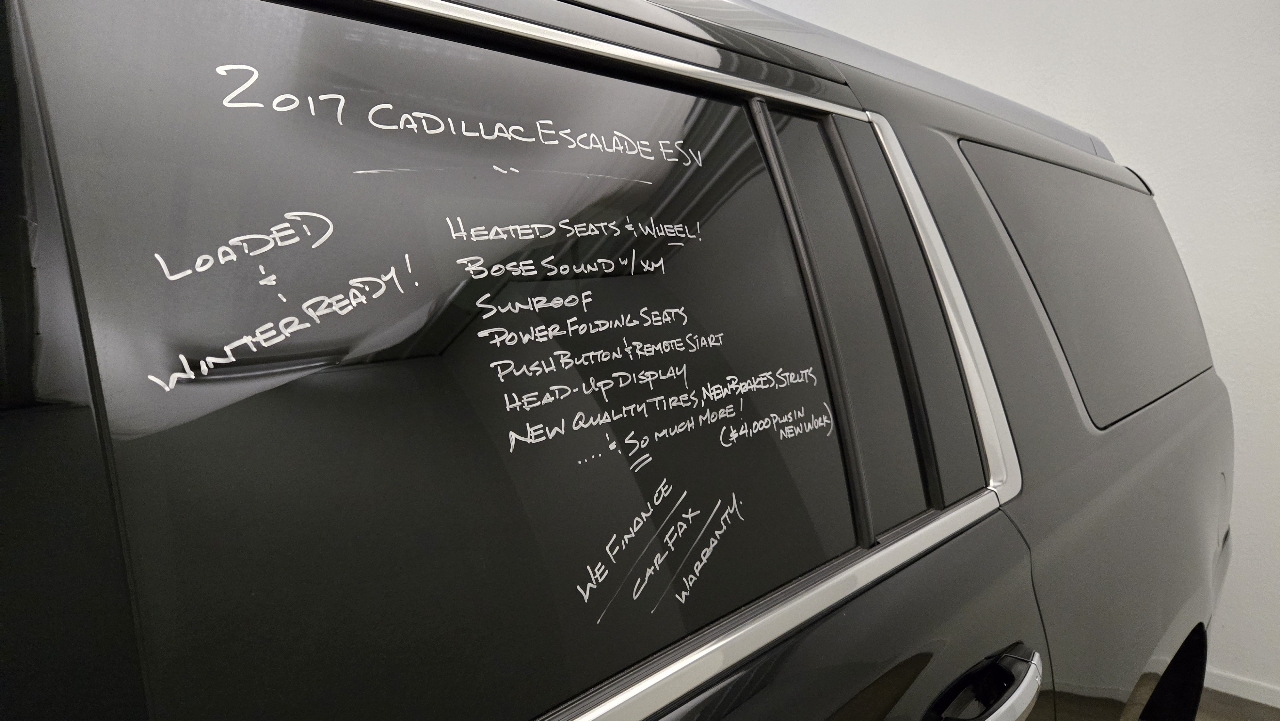 2017 CADILLAC ESCALADE ESV
LOADED
&
WINTER READY!
HEATED SEATS & WHEEL!
BOSE SOUND W/ XM
SUNROOF
POWER FOLDING SEATS
PUSH BUTTON & REMOTE START
HEAD-UP DISPLAY
NEW QUALITY TIRES, NEW BRAKES, STRUTS
.... & SO MUCH MORE!
($4,000 PLUS IN
NEW WORK)
WE FINANCE
CAR FAX
WARRANTY.